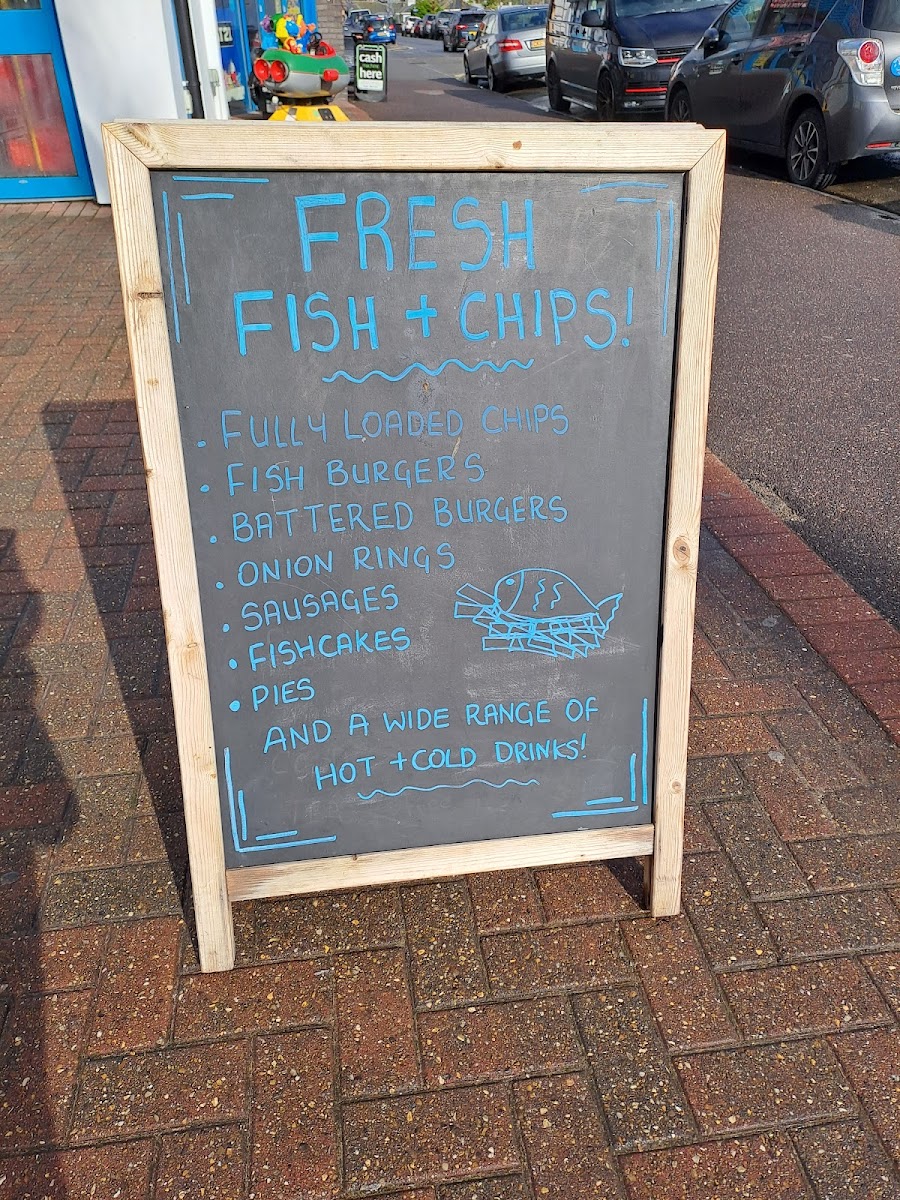 cash
here
FRESH
FISH + CHIPS!
• FULLY LOADED CHIPS
• FISH BURGERS
• BATTERED BURGERS
• ONION RINGS
• SAUSAGES
• FISHCAKES
• PIES
AND A WIDE RANGE OF
HOT + COLD DRINKS!